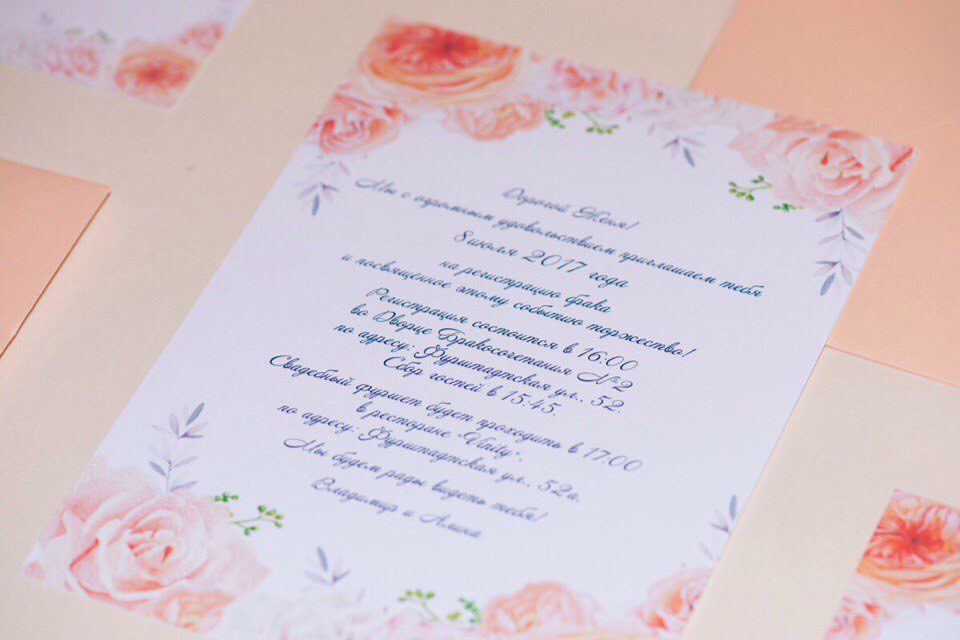 Дорогой Женя!
Мы с огромным удовольствием приглашаем тебя
8 июля 2017 года
на регистрацию брака
и посвященное этому событию торжество!
Регистрация состоится в 16:00
во Дворце Бракосочетания №2
по адресу: Фурштадтская ул., 52.
Сбор гостей в 15:45.
Свадебный фуршет будет проходить в 17.00
в ресторане "Unity".
по адресу: Фурштадтская ул., 52а.
Мы будем рады видеть тебя!
Владимир и Алина